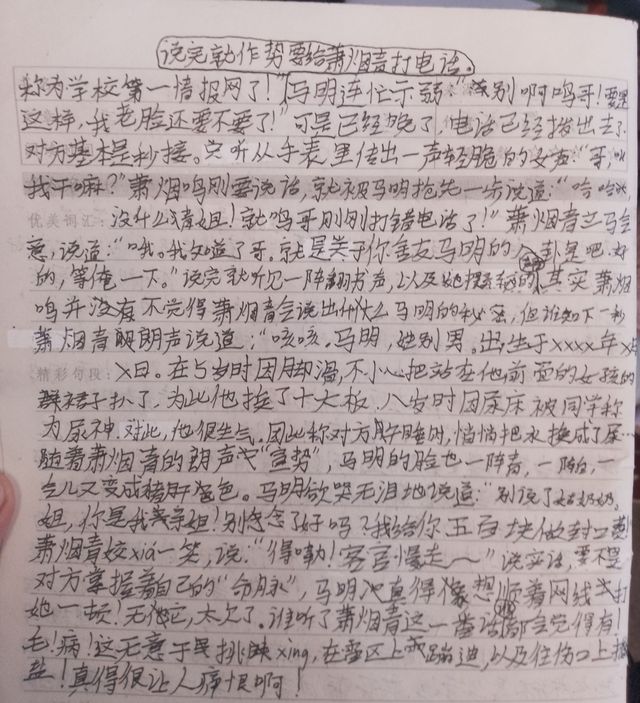 说完就作势要给萧烟青打电话。
称为学校第一情报网了！"马明连忙示弱"别别啊鸣哥！要是
这样，我老脸还要不要了！"可是已经晚了，电话已经拨出去了
对方基本是秒接。只听从手表里传出一声轻脆的女声："哥，咋
我干嘛？"萧烟鸣刚要说话，就被马明抢先一步说道："哈哈哈，
优美词汇：没什么青姐！就鸣哥刚刚打错电话了！"萧烟青立马会
意，说道："哦。我知道了哥。就是关于你室友马明的八卦是吧，好
的，等俺一下。"说完就听见一阵翻书声，以及她摸索的其实萧烟
鸣并没有不觉得萧烟青会说出什么马明的秘密，但谁知下一秒
萧烟青朗声说道："咳咳。马明，性别男。出生于xxxx年x月
精彩句段：x日。在5岁时因脚滑，不小心把站在他前面的女孩的
裙子扒了，为此他挨了十大板。八岁时因尿床被同学称
为尿神。对此，他很生气。因此称对方睡时，悄悄把水换成了尿…
随着萧烟青的朗声"宣势"，马明的脸也一阵青，一阵白，一
会儿又变成猪肝色。马明欲哭无泪地说道："别说了姑奶奶，
姐，你是我亲姐！别念了好吗？我给你五百块做封口费！
萧烟青姣xiá一笑，说："得嘞！客官慢走～"说实话，要不是
对方掌握着自己的"命脉"，马明也真得像想顺着网线打
她一顿！无他它，太欠了。谁听了萧烟青这一番话都会觉得有！
毛！病！这无意于是挑衅xing，在雷区上蹦迪，以及往伤口上撒
盐！真得很让人痛恨啊！